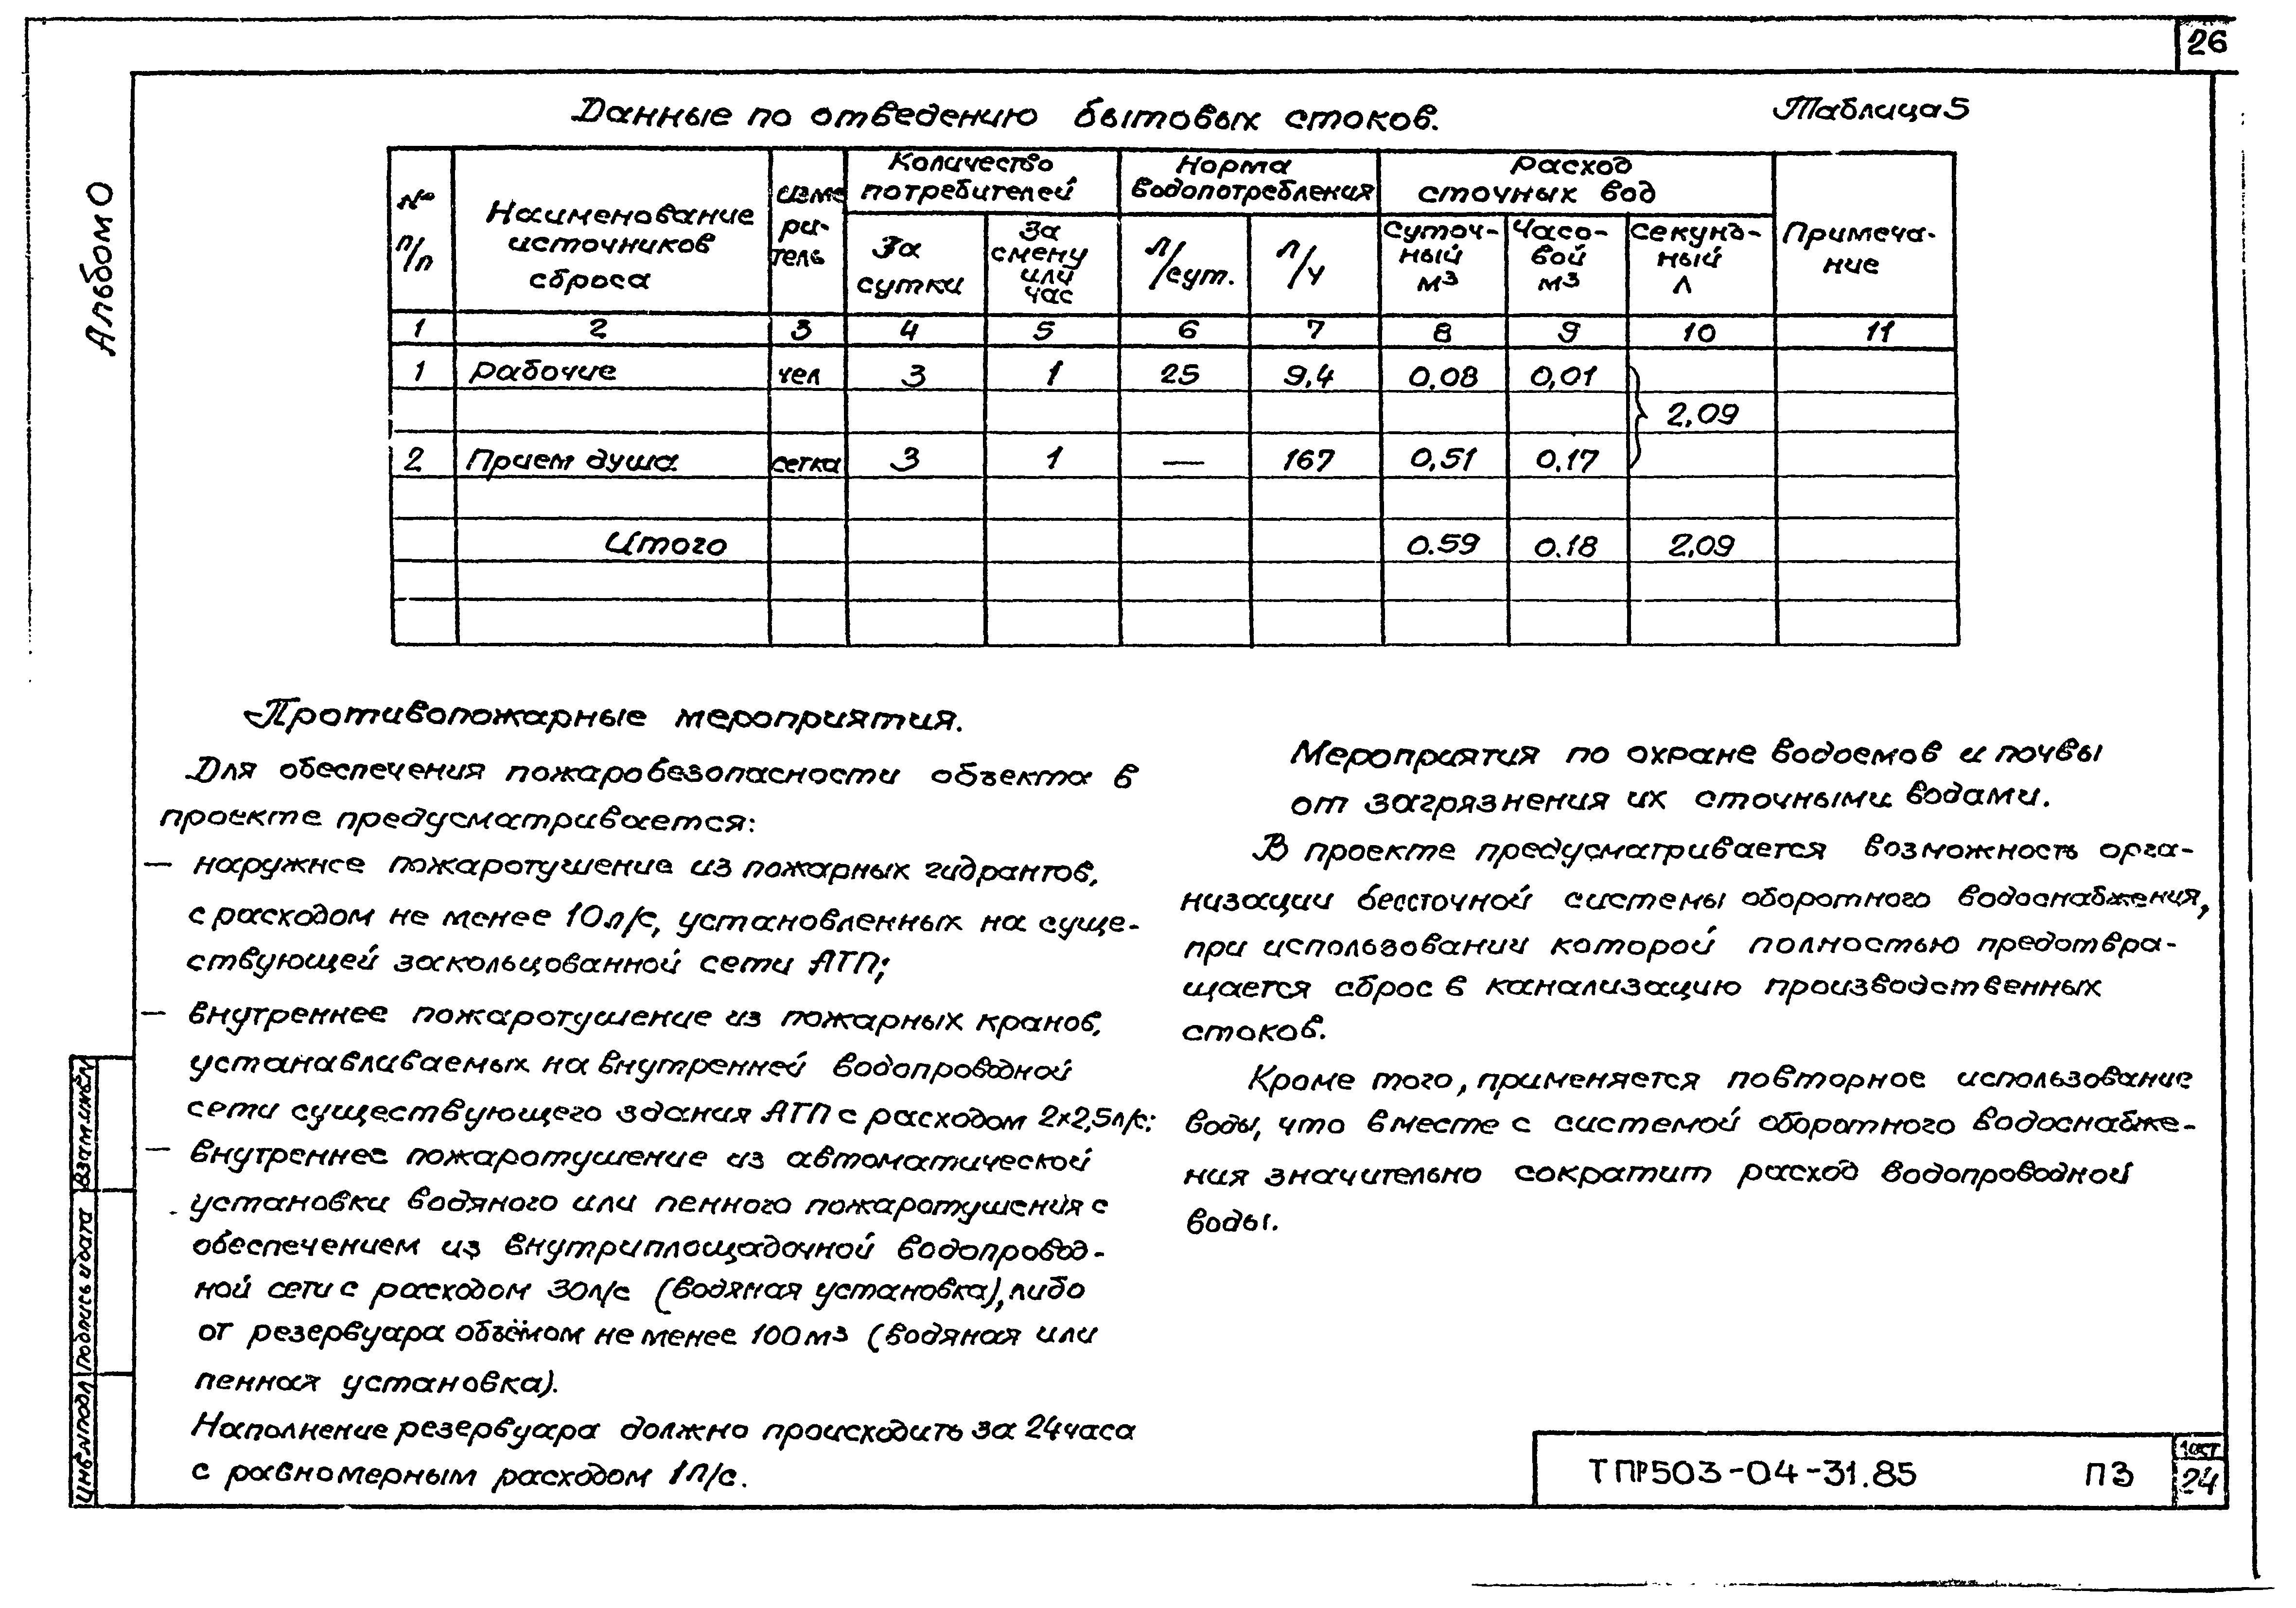 26
Альбом 0
Данные по отведению бытовых стоков.
Таблица 5
№ п/п
Наименование источников сброса
изме ри- тель
Количество потребителей
Норма водопотребления
Расход сточных вод
Примеча- ние
За сутки
За смену или час
л/сут.
л/ч
Суточ- ный м3
Часо- вой м3
Секунд- ный л
1 2 3 4 5 6 7 8 9 10 11
1 Рабочие чел 3 1 25 9,4 0,08 0,01
2,09
2 Прием душа сетка 3 1 — 167 0,51 0,17
Итого 0.59 0.18 2,09
Противопожарные мероприятия.
Для обеспечения пожаробезопасности объекта в
проекте предусматривается:
— наружнсе пожаротушение из пожарных гидрантов,
с расходом не менее 10л/с, установленных на суще-
ствующей заскольцованной сети АТП;
— внутреннее пожаротушение из пожарных кранов,
устанавливаемых на внутренней водопроводной
сети существующего здания АТП с расходом 2х2,5л/с;
— внутреннее пожаротушение из автоматической
установки водяного или пенного пожаротушения с
обеспечением из внутриплощадочной водопровод-
ной сети с расходом 30л/с (водяная установка), либо
от резервуара объёмом не менее 100м3 (водяная или
пенная установка).
Наполнение резервуара должно происходить за 24часа
с равномерным расходом 1л/с.
Мероприятия по охране водоемов и почвы
от загрязнения их сточными водами.
В проекте предусматривается возможность орга-
низации бессточной системы оборотного водоснабжения,
при использовании которой полностью предотвра-
щается сброс в канализацию производственных
стоков.
Кроме того, применяется повторное использование
воды, что вместе с системой оборотного водоснабже-
ния значительно сократит расход водопроводной
воды.
Взам.инв.№
Подпись и дата
Инв.№ подл
ТПР503-04-31.85 ПЗ
лист
24